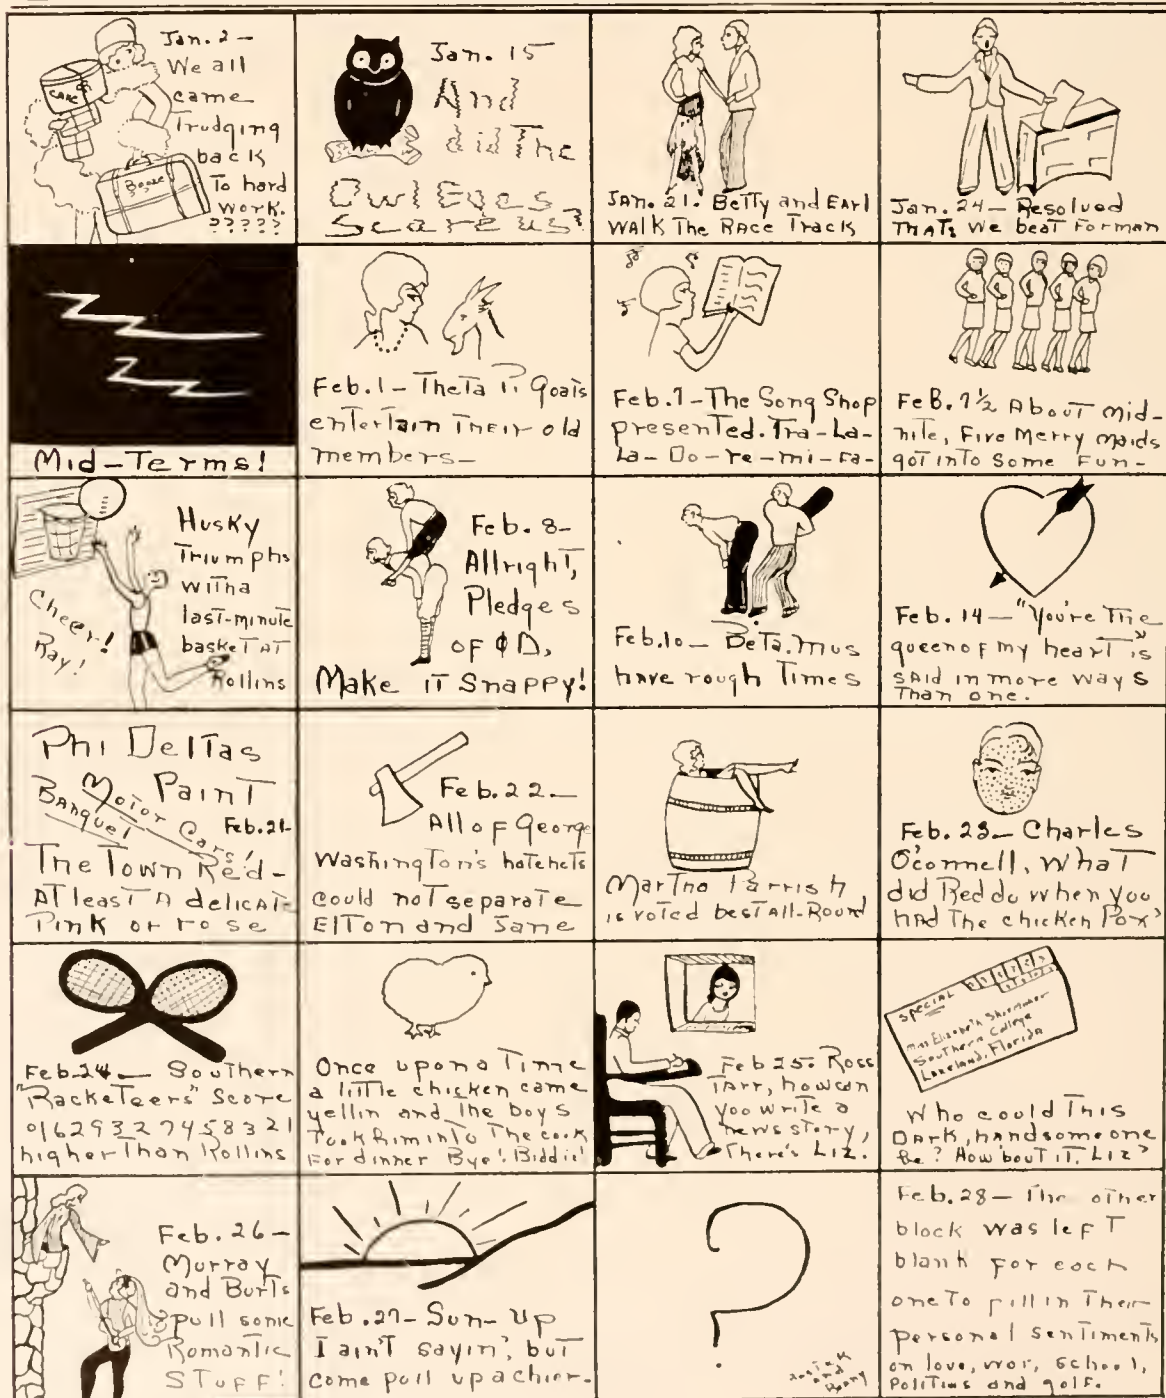 CAKE
Booze
Jan. 2 –
We all
came
Trudging
back
To hard
work.
?????
Jan. 15
And
did The
Owl Eyes
Scare us?
JAN. 21. Betty and Earl
WALK The RACe Track
Jan. 24 – Resolved
THAT: We beat Forman
Mid-Terms!
Feb. 1 – Theta Pi Goats
entertain Their old
members –
Feb. 7 – The Song Shop
presented. Tra-La-
La-Do-re-mi-fa-
FeB. 7 ½ About mid-
nite, Five Merry maids
got into some Fun –
Cheer!
Ray!
Husky
Triumphs
with a
last-minute
basket AT
Rollins
Feb. 8 –
Allright,
Pledges
of ΦD,
Make it Snappy!
Feb. 10 – Beta. Mus
have rough Times
Feb. 14 – "You're The
queen of my heart" is
SAid in more ways
Than one.
Phi Deltas
Paint
Motor Cars!
Banquet
Feb. 21 –
The Town Red –
At least A delicate
Pink or rose
Feb. 22 –
All of George
Washington's hatchets
could not separate
Elton and Jane
Martha Parrish
is voted best All-Round
Feb. 23 – Charles
O'Connell, What
did Red do when you
had The chicken Pox?
Feb. 24 – Southern
"Racketeers" Score
01629327458321
higher Than Rollins
Once upon a Time
a little chicken came
yellin and The boys
Took him into The cook
For dinner Bye! Biddie!
Feb 25. Ross
Tarr, how can
you write a
news story,
There's Liz.
SPECIAL
Miss Elizabeth Shoemaker
Southern College
Lakeland, Florida
Who could This
DArk, handsome one
Be? How 'bout iT, Liz?
Feb. 26 –
Murray
and Burts
pull some
Romantic
STuff!
Feb. 27 – Sun-Up
I ain't sayin', but
come pull up a chier.
?
and
Feb. 28 – The other
block was left
blank for each
one To fill in Their
personal sentiments
on love, war, school,
Politics and golf.